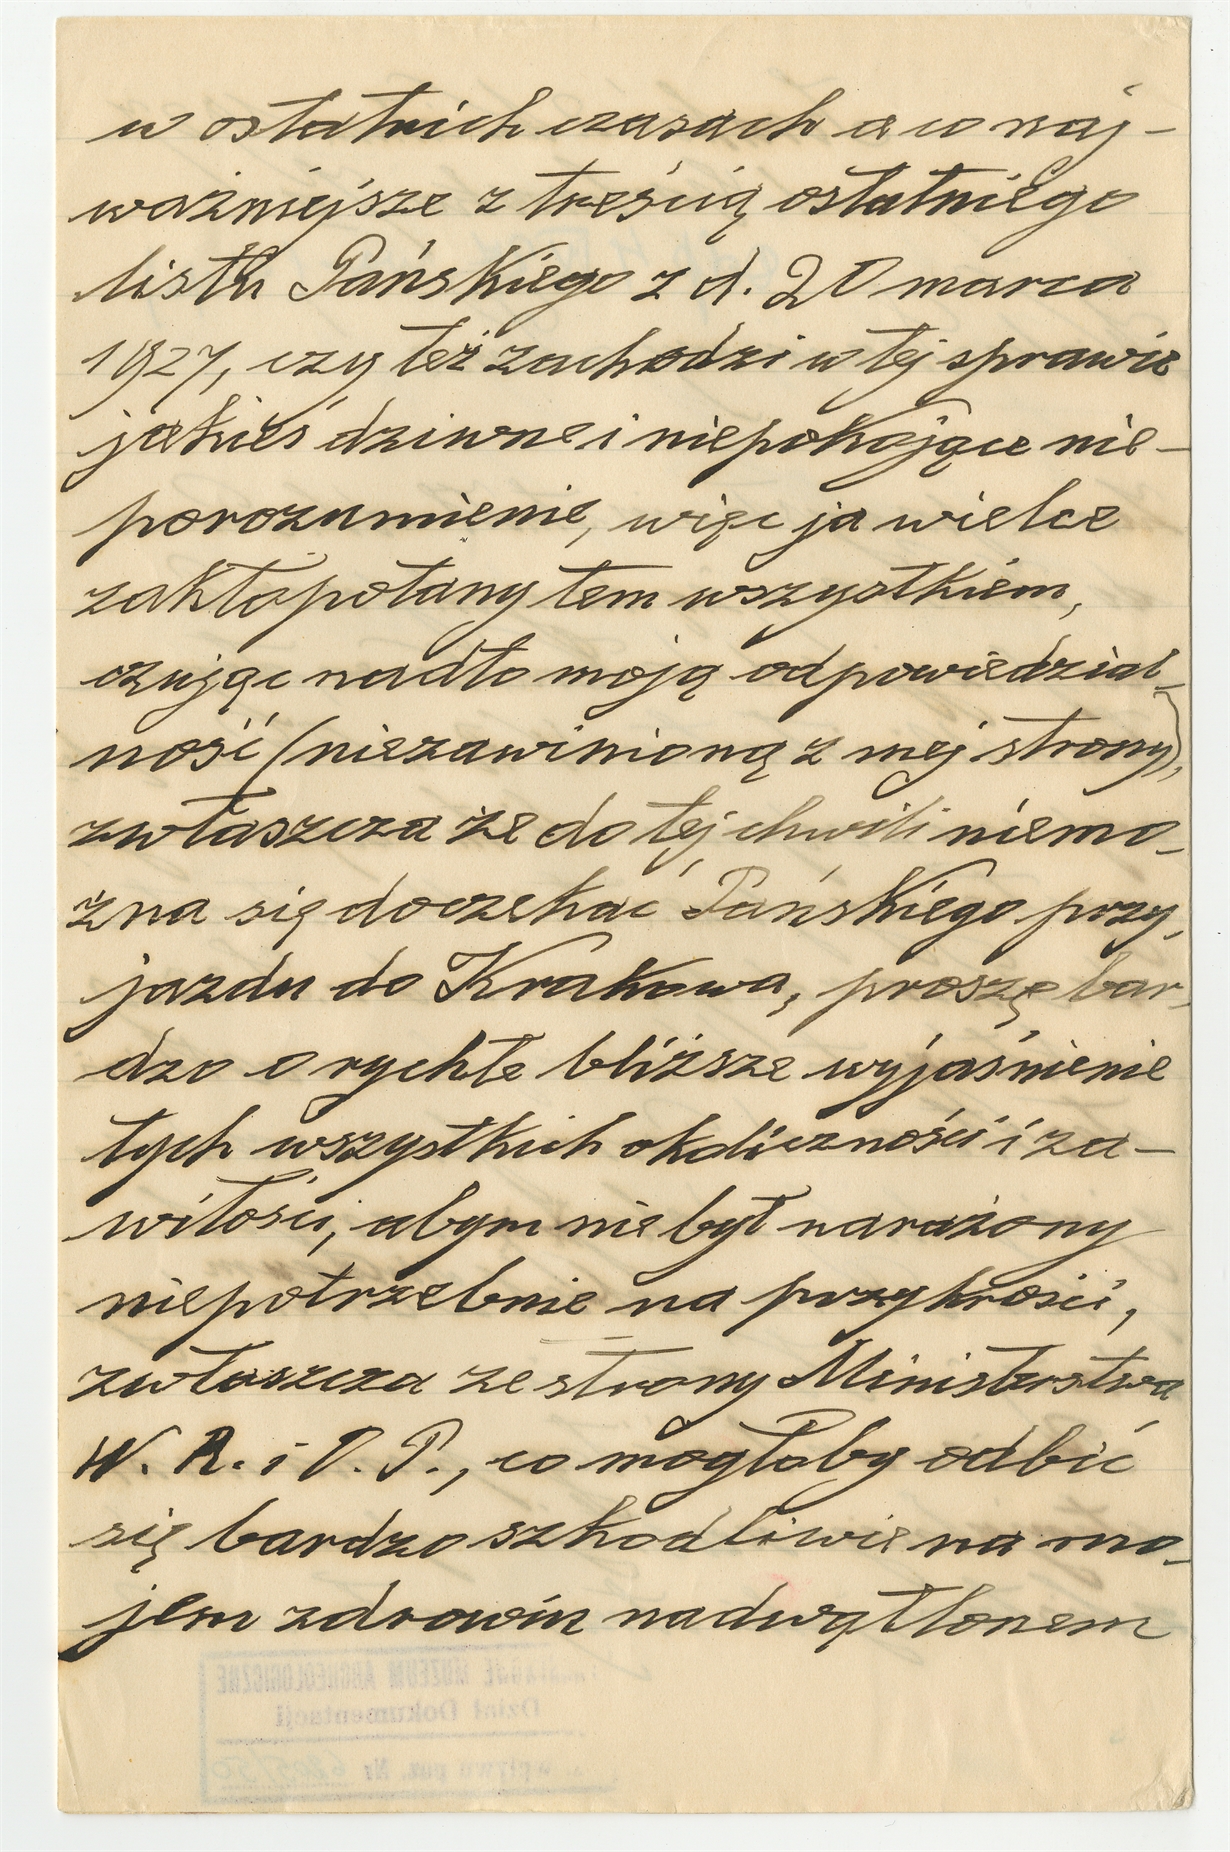 w ostatnich czasach a co naj-
ważniejsze z treścią ostatniego
listu Pańskiego z d. 20 marca
1927, czy też zachodzi w tej sprawie
jakieś dziwne i niepokojące nie-
porozumienie, więc ja wielce
zakłopotany tem wszystkiem,
czując nadto moją odpowiedzial-
ność (niezawinioną z mej strony),
zwłaszcza że do tej chwili niemo-
żna się doczekać Pańskiego przy-
jazdu do Krakowa, proszę bar-
dzo o rychłe bliższe wyjaśnienie
tych wszystkich okoliczności i za-
wiłości, abym nie był narażony
niepotrzebnie na przykrości,
zwłaszcza ze strony Ministerstwa
W. R. i O. P., co mogłoby odbić
się bardzo szkodliwie na mo-
jem zdrowiu nadwątlonem
MUZEUM ARCHEOLOGICZNE
Dział Dokumentacji
poz. Nr